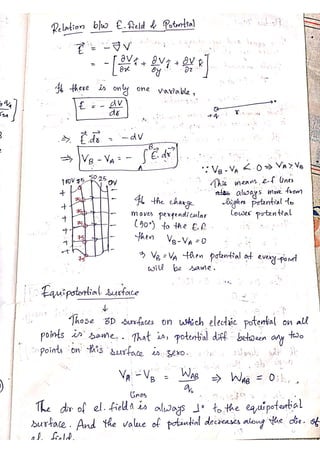 Relation b/w E. field & Potential
E⃗ = - ∇⃗V
= - [∂V/∂x î + ∂V/∂y ĵ + ∂V/∂z k̂]
If there is only one variable,
E = - dV/dr
+q r
⇒ E⃗ dr⃗ = - dV
⇒ VB - VA = - ∫ E⃗. dr⃗
A B
∵ VB - VA < 0 ⇒ VA > VB
This means e.f lines
are always move from
higher potential to
lower potential
100V 75 50 25 0V
If the charge
moves perpendicular
(90°) to the E.F.
then VB - VA = 0
⇒ VB = VA then potential at every point
will be same.
Equipotential surface
↓
Those 3D surfaces on which electric potential on all
points is same. That is, potential diff between any two
points on this surface is zero.
VA - VB = WAB/q₀ ⇒ WAB = 0
The dir of el. field lines is always ⊥ʳ to the equipotential
surface. And the value of potential decreases along the dir. of
el. field.